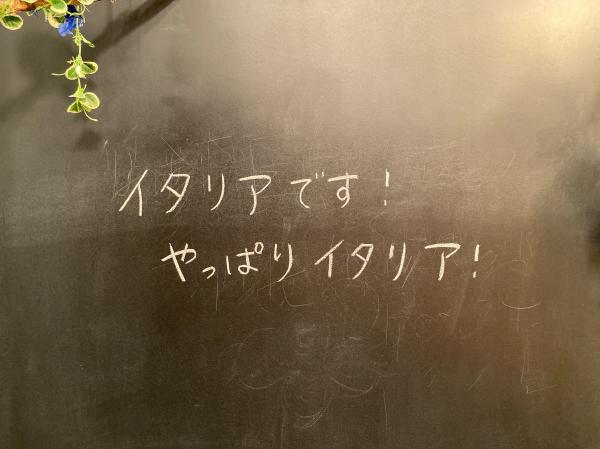 イタリアです!
やっぱりイタリア!